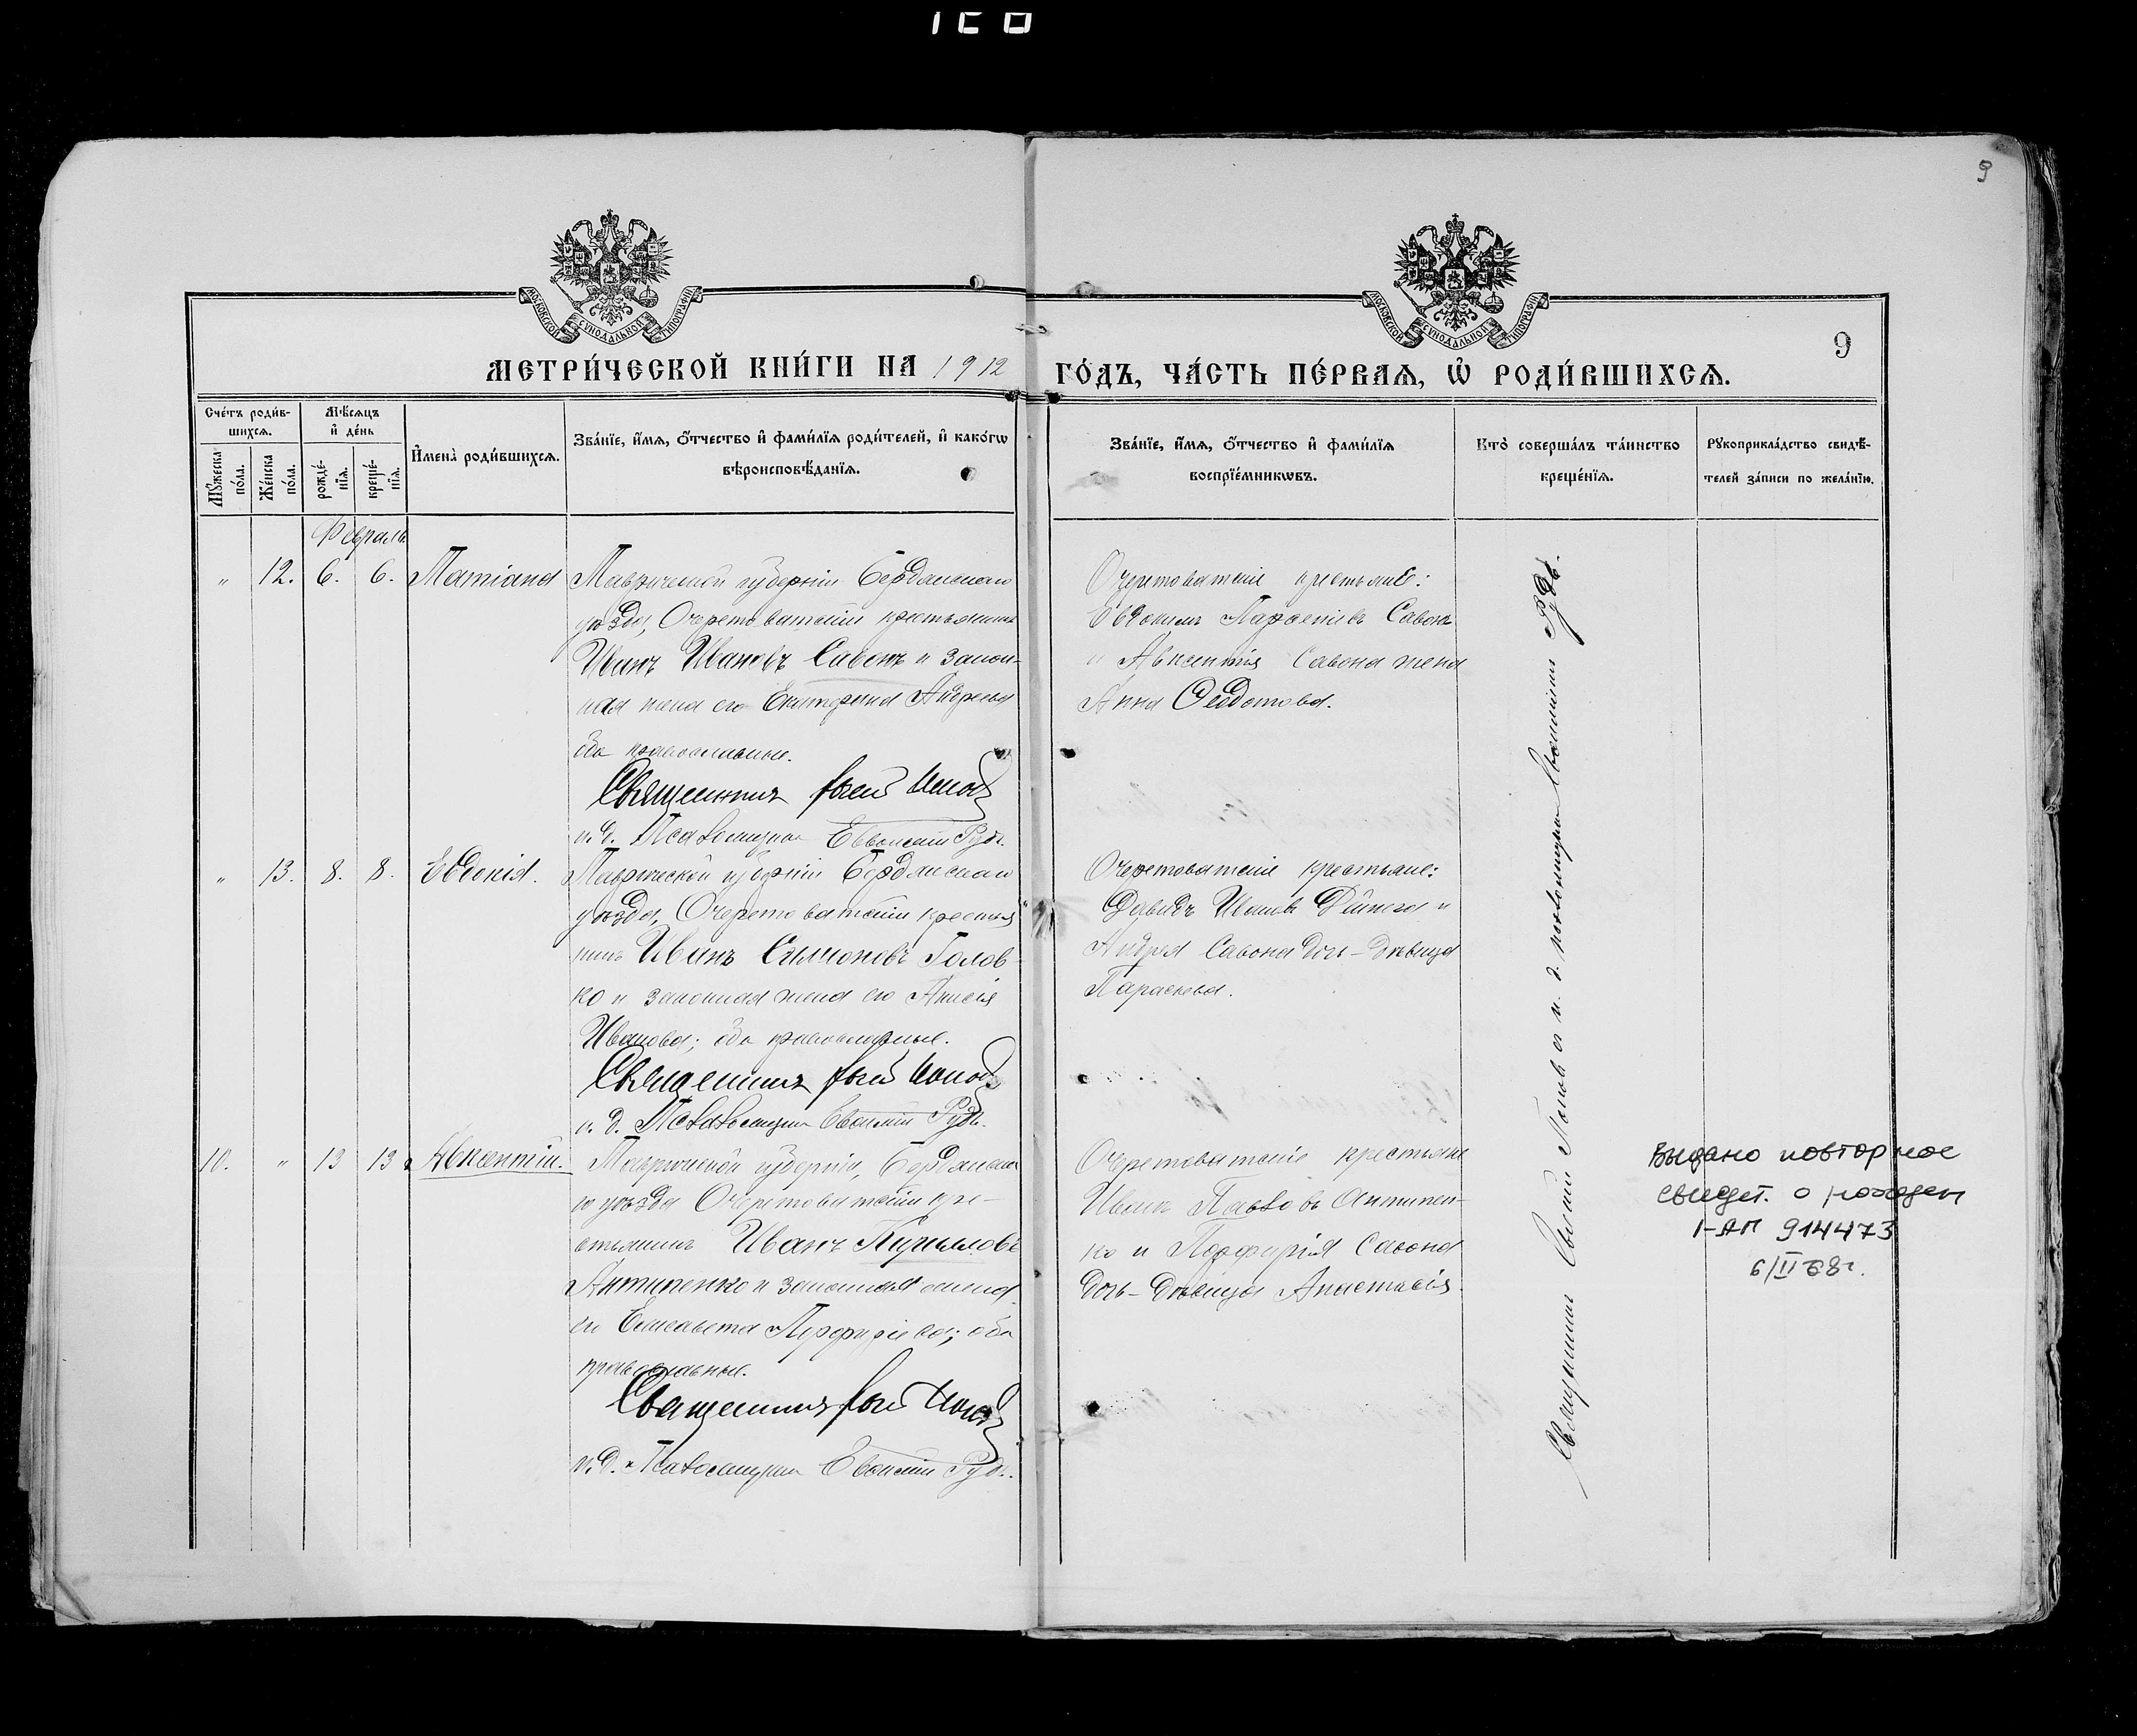 9
МОСКОВСКОЙ СѴНОДАЛЬНОЙ ТИПОГРАФІИ
МОСКОВСКОЙ СѴНОДАЛЬНОЙ ТИПОГРАФІИ
9
МЕТРИ́ЧЕСКОЙ КНИ́ГИ НА 1912 ГО́ДЪ, ЧА́СТЬ ПЕ́РВАЯ, Ѡ РОДИ́ВШИХСЯ.
Сче́тъ роди́в-
шихся.
Му́жеска
по́ла.
Же́нска
по́ла.
Мѣ́сяцъ
и де́нь
рожде́-
нія.
креще́-
нія.
Имена̀ роди́вшихся.
Зва́нїе, и́мя, о́тчество и фами́лїя роди́телей, и како́гѡ
вѣроисповѣ́данїя.
Зва́нїе, и́мя, о́тчество и фами́лїя
воспрїе́мникѡвъ.
Кто̀ соверша́лъ та́инство
креще́нїя.
Рукоприкла́дство свидѣ́-
телей за́писи по жела́нїю.
Февраль
" 12. 6. 6. Татіана
Таврической губерніи Бердянскаго
уѣзда, Очеретоватскій крестьянинъ
Иванъ Ивановъ Савонъ и закон-
ная жена его Екатерина Андреева
оба православные.
Священникъ
и. д. Псаломщика Евѳимій Рудь.
Очеретоватскіе крестьяне:
Евдокимъ Парѳеніевъ Савонъ
и Авксентія Савона жена
Анна Ѳеодотова.
" 13. 8. 8. Евдокія.
Таврической губерніи Бердянскаго
уѣзда, Очеретоватскій крестья
нинъ Иванъ Симоновъ Голов-
ко и законная жена его Анисія
Иванова; оба православные.
Священникъ
и. д. Псаломщика Евѳимій Рудь.
Очеретоватскіе крестьяне:
Давидъ Ивановъ Дейнега и
Андрея Савона дочь-дѣвица
Параскева.
10. " 13 13 Авксентій.
Таврической губерніи, Бердянска
го уѣзда Очеретоватскій кре-
стьянинъ Иванъ Кирилловъ
Антипенко и законная жена
его Елисавета Порфиріева; оба
православные.
Священникъ
и. д. Псаломщика Евѳимій Рудь.
Очеретоватскіе крестьяне
Иванъ Павловъ Антипен-
ко и Порфирія Савона
дочь-дѣвица Анастасія.
Священникъ Поповъ съ и. д. псаломщика Евѳиміемъ Рудь.
Выдано повторное
свидет. о рожден
I-АП 914473
6/II 68г.